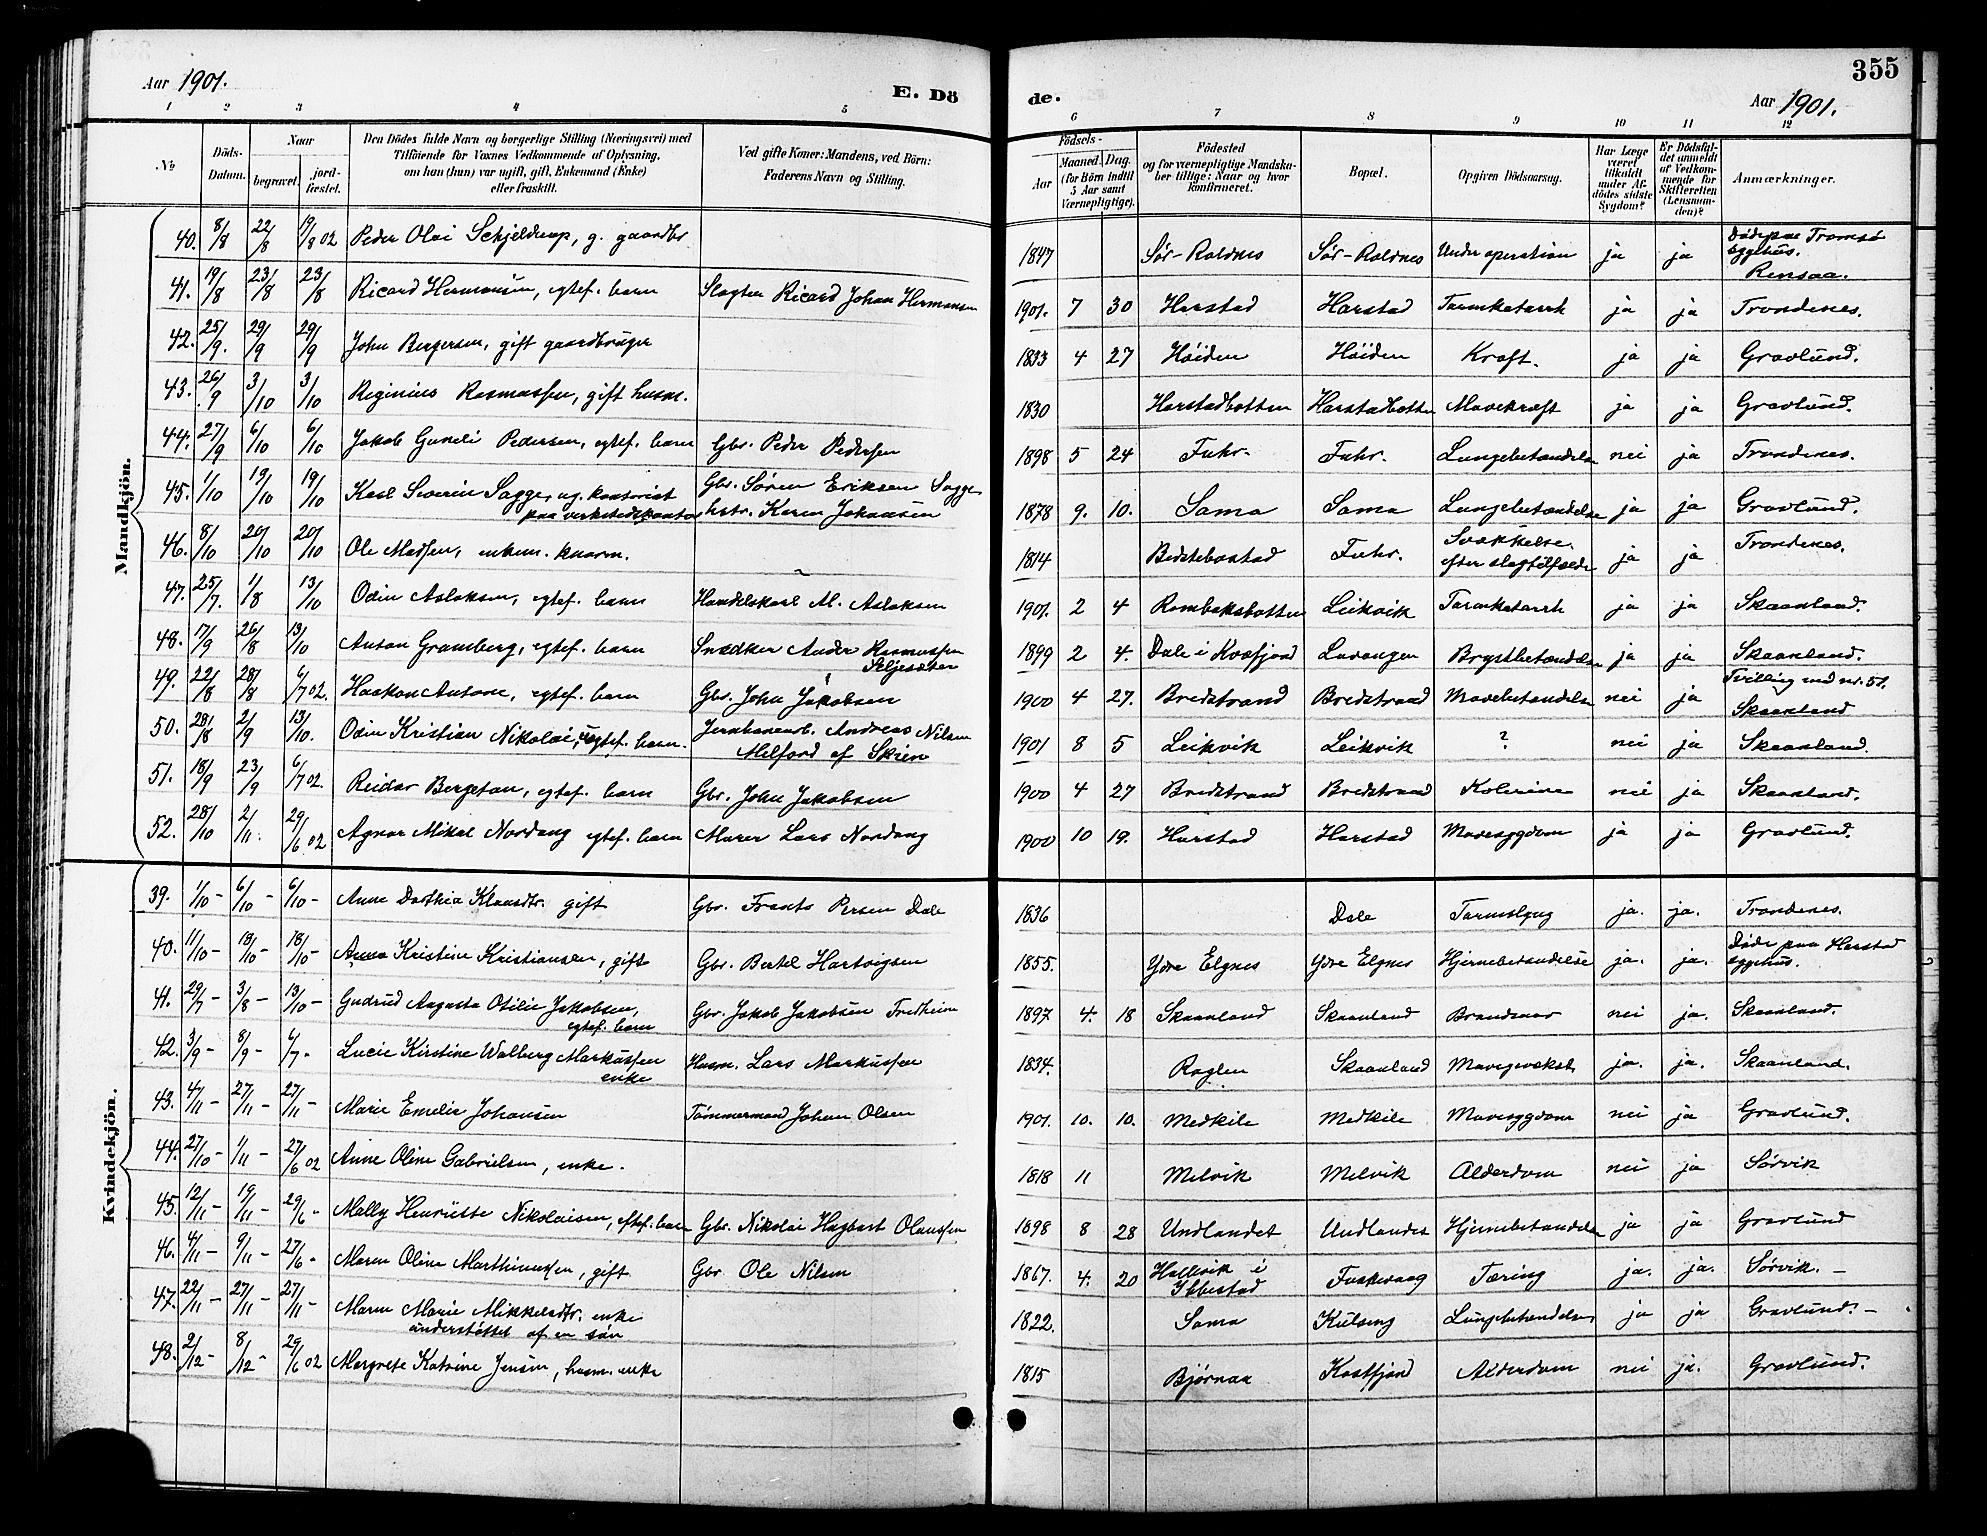 355
Aar 1901.
E. Dö
de.
Aar 1901.
1 2 3 4 5 6 7 8 9 10 11 12
№
Döds-Datum.
Naar
begravet.
jord-fæstet.
Den Dödes fulde Navn og borgerlige Stilling (Næringsvei) med
Tilföiende for Voxnes Vedkommende af Oplysning,
om han (hun) var ugift, gift, Enkemand (Enke)
eller fraskilt.
Ved gifte Koner: Mandens, ved Börn:
Faderens Navn og Stilling.
Födsels-
Aar
Maaned. Dag.
(for Börn indtil
5 Aar samt
Værnepligtige).
Födested
og for værnepligtige Mandska-
ber tillige: Naar og hvor
konfirmeret.
Bopæl.
Opgiven Dödsaarsag.
Har Læge
været
tilkaldt
under Af-
dödes sidste
Sygdom?
Er Dödsfal-
det anmeldt
af Vedkom-
mende for
Skifteretten
(Lensman-
den)?
Anmærkninger.
Mandkjön.
40. 8/8 22/8 19/8 02 Peder Olai Schjelderup, g. gaardbr. 1847 Sør-Roldnes Sør-Roldnes Under operation ja ja Døde paa Tromsø sygehus. Rensaa.
41. 19/8 23/8 23/8 Ricard Hermansen, egtef. barn Slagter Ricard Johan Hermansen 1901. 7 30 Harstad Harstad Tarmkatarrh ja ja Trondenes.
42. 25/9. 29/9 29/9 John Bergersen, gift gaardbruger 1833 4 27 Høiden Høiden Kræft. ja ja Gravlund.
43. 26/9 3/10 3/10 Reginius Rasmussen, gift husm. 1830 Harstadbotten Harstadbotten Mavekræft ja ja Gravlund.
44. 27/9 6/10 6/10 Jakob Guneli Pedersen, egtef. barn Gbr. Peder Pedersen 1898 5 24 Fuhr. Fuhr. Lungebetændelse nei ja Trondenes.
45. 1/10 19/10 19/10 Karl Severin Sagge, ug. kontorist paa verkstedskontor Gbr. Søren Eriksen Sagge, hstr. Karen Johansen 1878 9. 10. Sama Sama Lungebetændelse ja ja Gravlund.
46. 8/10 20/10 20/10 Ole Madsen, enkem. kaarm. 1814 Bedstebostad Fuhr. Svækkelse efter slagtilfælde ja ja Trondenes.
47. 25/7. 1/8 13/10 Odin Aslaksen, egtef. barn Handelskarl M. Aslaksen 1901. 2 4 Rombaksbotten Leikvik Tarmkatarrh ja ja Skaanland.
48. 17/9 26/8 13/10 Anton Gramberg, egtef. barn Snedker Ander Rasmussen Seljesæter 1899 2 4. Dale i Kvæfjord Lavangen Brystbetændelse ja ja Skaanland.
49. 22/8 28/8 6/7 02. Haakon Antone, egtef. barn Gbr. John Jakobsen 1900 4 27. Bredstrand Bredstrand Mavebetændelse nei ja Tvilling med nr. 51. Skaanland
50. 28/8 2/9 13/10. Odin Kristian Nikolai, uegtef. barn. Jernbanearb. Andreas Nilsen Milford af Skien 1901 8 5 Leikvik Leikvik ? nei ja Skaanland.
51. 18/9 23/9 6/7 02. Reidar Bergeton, egtef. barn Gbr. John Jakobsen 1900 4 27 Bredstrand Bredstrand Kolerine nei ja Skaanland.
52. 28/10 2/11. 29/6 02 Agnar Mikal Nordang egtef. barn Murer Lars Nordang 1900 10 19. Harstad Harstad Mavesygdom ja ja Gravlund.
Kvindekjön.
39. 1/10 - 6/10 - 6/10 - Anne Dorthea Klausdtr. gift Gbr. Frants Persen Dale 1836 Dale Tarmslyng ja. ja. Trondenes.
40. 11/10 - 18/10 - 18/10 - Anna Kristine Kristiansen, gift Gbr. Bertel Hartvigsen 1855. Ydre Elgnes Ydre Elgnes Hjernebetændelse ja. ja. Døde paa Harstad sygehus.
41. 29/7 - 3/8 - 13/10 - Gudrud Augusta Otilie Jakobsen, egtef. barn Gbr. Jakob Jakobsen Fredheim 1897 4. 18 Skaanland Skaanland Brandsaar nei ja. Skaanland.
42. 3/9 - 8/9 - 6/7 - Lucie Kirstine Walberg Markussen enke Husm. Lars Markussen 1834. Roglen Skaanland Mavegevækst ja. ja. Skaanland.
43. 4/11 - 27/11 - 27/11 - Marie Emelie Johansen Tømmermand Johan Olsen 1901. 10. 10. Medkile Medkile Mavesygdom nei ja Gravlund.
44. 27/10 - 1/11 - 27/6 02 Anne Oline Gabrielsen, enke. 1818 11 Melvik Melvik Alderdom nei ja Sørvik
45. 12/11 - 19/11 - 29/6 - Mally Henriette Nikolaisen, egtef. barn Gbr. Nikolai Hagbart Olaussen 1898 8 28 Undlandet Undlandet Hjernebetændelse ja ja Gravlund
46. 4/11 - 9/11 - 27/6 - Maren Oline Marthinussen, gift Gbr Ole Nilsen 1867. 4. 20 Hallvik i Ibbestad Fuskevaag Tæring ja. ja. Sørvik. -
47. 22/11 - 27/11 - 27/11 - Maren Marie Mikkelsdtr. enke understøttet af en søn 1822. Sama Kulseng Lungebetændelse ja ja Gravlund. -
48. 2/12 - 8/12 - 29/6 02 Margrete Katrine Jensen, husm. enke 1815 Bjørnaa Kastfjord Alderdom nei ja. Gravlund.